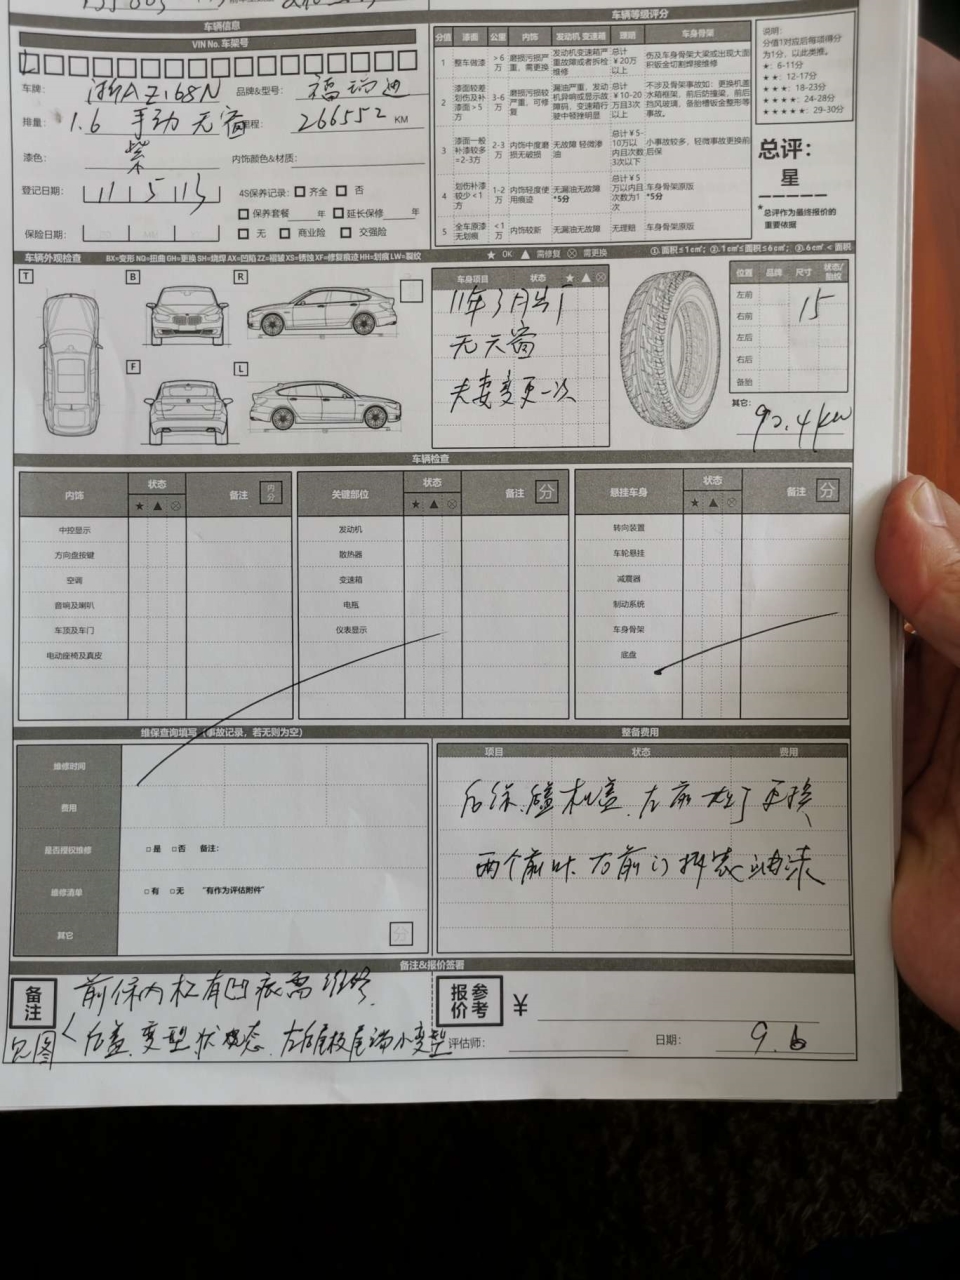 车辆信息
VIN No. 车架号
车牌： 浙AZ168N 品牌&型号： 福克斯
排量： 1.6 手动 无窗 里程： 266552 KM
漆色： 紫 内饰颜色&材质：
登记日期： 11 5 13 4S保养记录： 齐全 否
保养套餐 年 延长保修 年
保险日期： 无 商业险 交强险
车辆等级评分
分值 漆面 公里 内饰 发动机 变速箱 理赔 车身骨架
1 整车做漆 >6万 磨损污损严重、需更换 发动机变速箱严重故障或者拆检维修 总计￥20万以上 伤及车身骨架大梁或出现大面积钣金切割焊接维修
2 漆面较差划伤及补漆面>5方 3-6万 磨损污损较严重，可修复 漏油严重，发动机异响或显示故障码，变速箱行驶中顿挫明显 总计￥10-20万且3次以上 不涉及骨架事故如：更换机盖水箱框架，前后防撞梁，前后挡风玻璃，备胎槽钣金整形等事故。
3 漆面一般补漆较多=2-3方 2-3万 内饰中度磨损无破损 无故障 轻微渗油 总计￥5-10万以内且次数3次以下 小事故较多，轻微事故更换前后保
4 划伤补漆较少<1方 1-2万 内饰轻度使用痕迹 无漏油无故障 *5分 总计￥5万以内且次数为1次 车身骨架原版 *5分
5 全车原漆无划痕 <1万 内饰较新 无漏油无故障 无理赔 车身骨架原版
说明：
分值1对应后每项得分为1分，以此类推。
★：6-11分
★★：12-17分
★★★：18-23分
★★★★：24-28分
★★★★★：29-30分
总评：
星
*总评作为最终报价的重要依据
车辆外观检查 BX=变形 NQ=扭曲 GH=更换 SH=烧焊 AX=凹陷 ZZ=褶皱 XS=锈蚀 XF=修复痕迹 HH=划痕 LW=裂纹 ★ OK ▲ 需修复 ⊗ 需更换 ①面积≤1c㎡；②.1c㎡≤面积≤6c㎡；③.6c㎡<面积
T B R
F L
车身项目 状态 ★ ▲ ⊗
11年3月出厂
无天窗
夫妻变更一次
位置 品牌 尺寸 状态/胎纹
左前
右前 15
左后
右后
备胎
其它： 92.4kw
车辆检查
内饰 状态 ★ ▲ ⊗ 备注 内分
中控显示
方向盘按键
空调
音响及喇叭
车顶及车门
电动座椅及真皮
关键部位 状态 ★ ▲ ⊗ 备注 分
发动机
散热器
变速箱
电瓶
仪表显示
悬挂车身 状态 ★ ▲ ⊗ 备注 分
转向装置
车轮悬挂
减震器
制动系统
车身骨架
底盘
维保查询填写（事故记录，若无则为空）
维修时间
费用
是否授权维修 □是 □否 备注：
维修清单 □有 □无 “有作为评估附件”
其它 分
整备费用
项目 状态 费用
后保.后盖 机盖.左前大灯更换、
两个前叶.右前门拆装
备注&报价签署
备注 前保内杠有凹痕需维修.
见图 后盖.变型状态.左后尾板尾端小变型
参考报价 ￥
评估师： 日期： 9.6